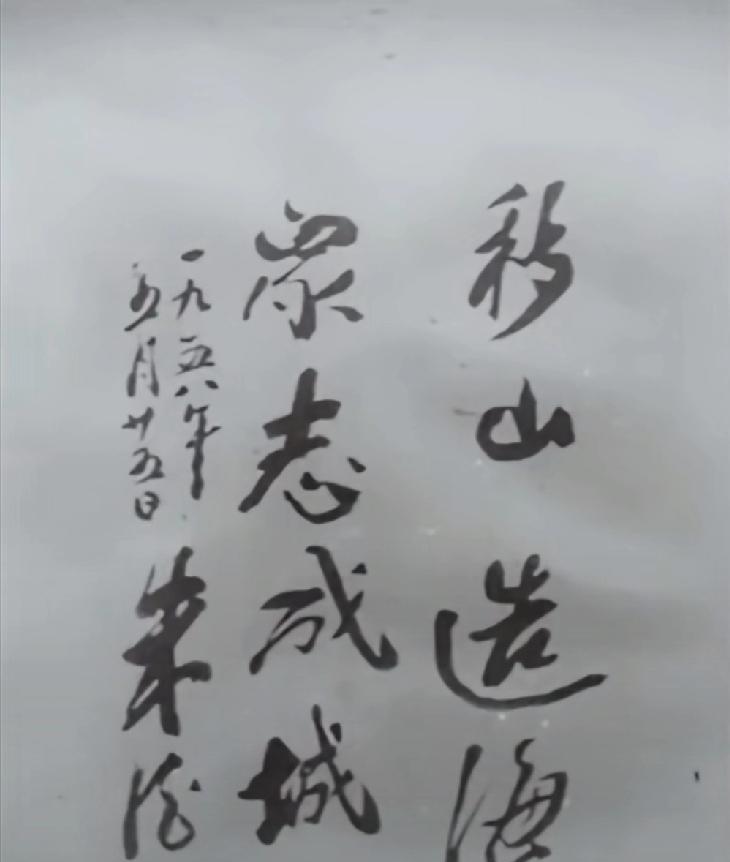 移山造海
眾志成城
一九五八年
五月廿五日
朱德